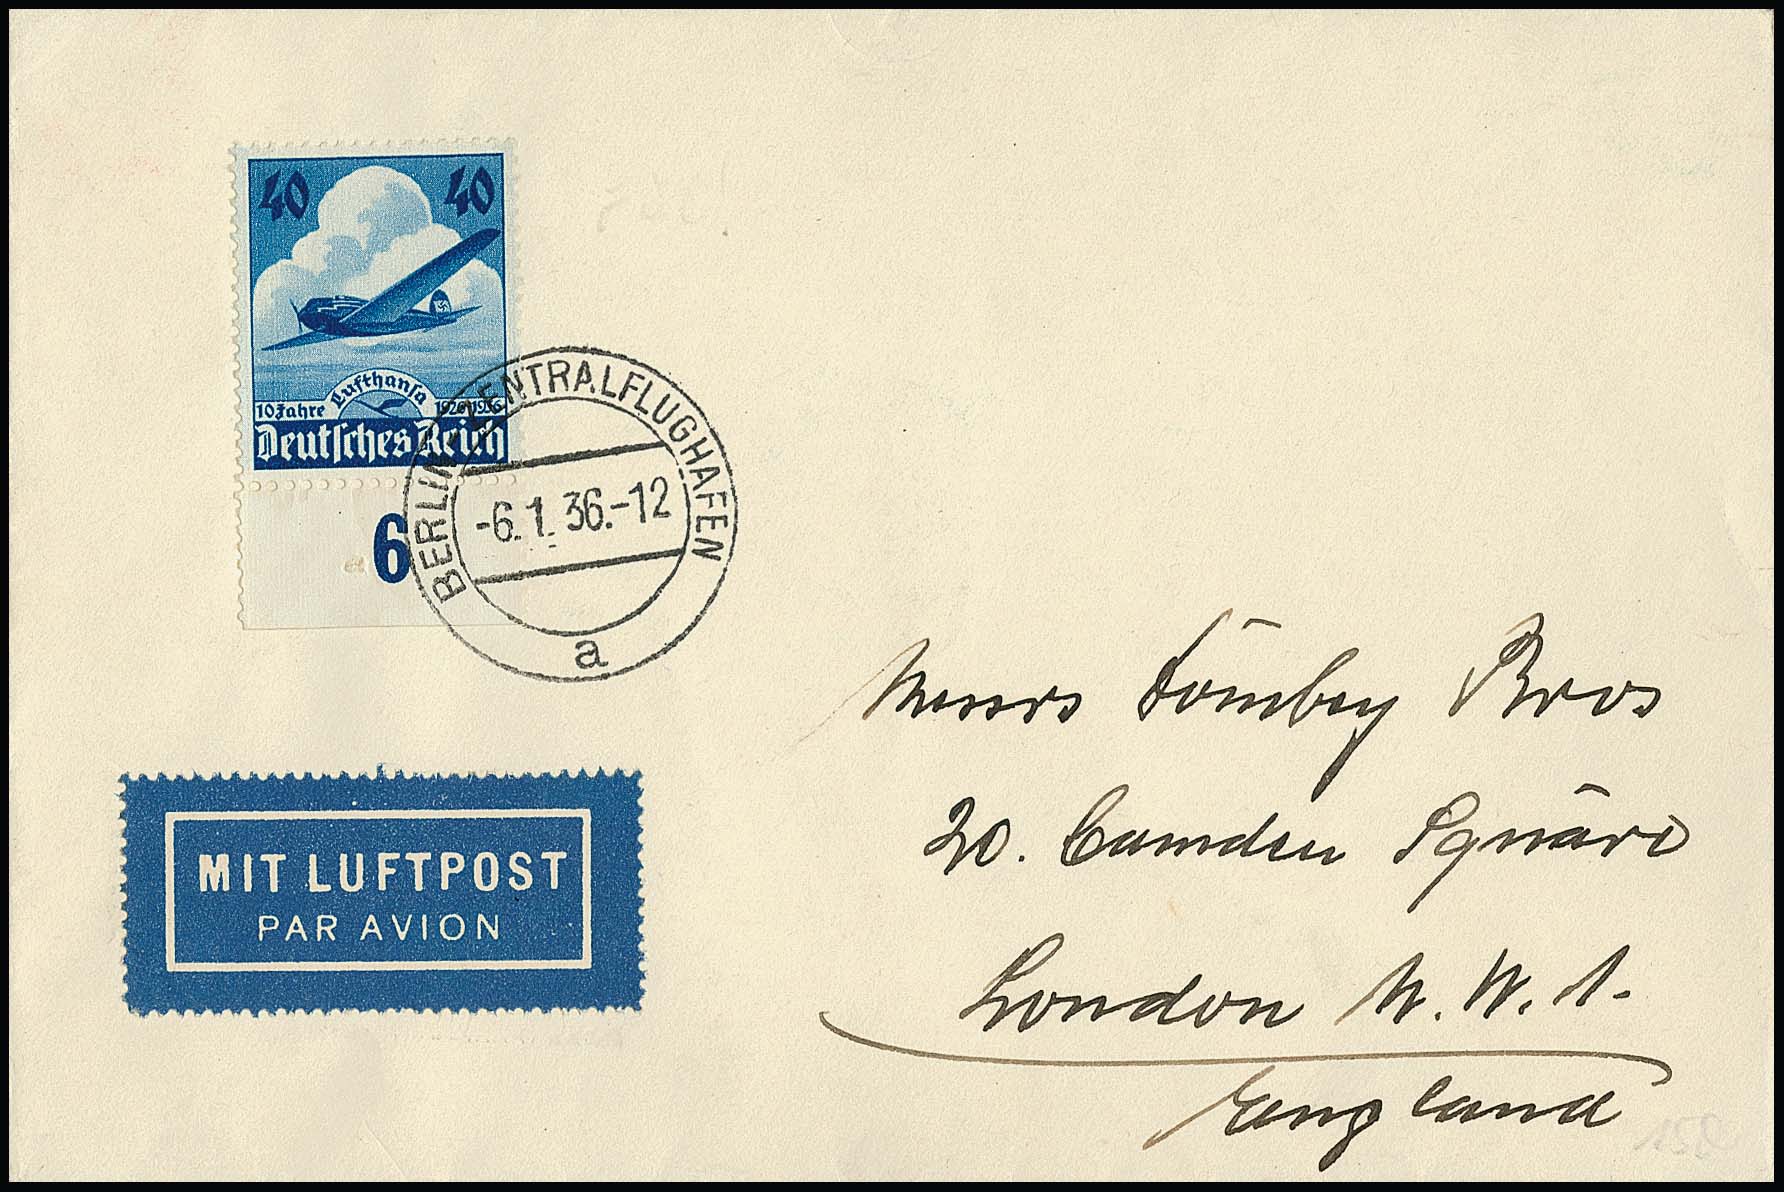 40 40
Lufthansa
10 Jahre 1926-1936
Deutsches Reich
6
BERLIN-ZENTRALFLUGHAFEN
-6.1.36.-12
a
MIT LUFTPOST
PAR AVION
Messrs Dombey Bros
20. Camden Square
London N.W.1.
England